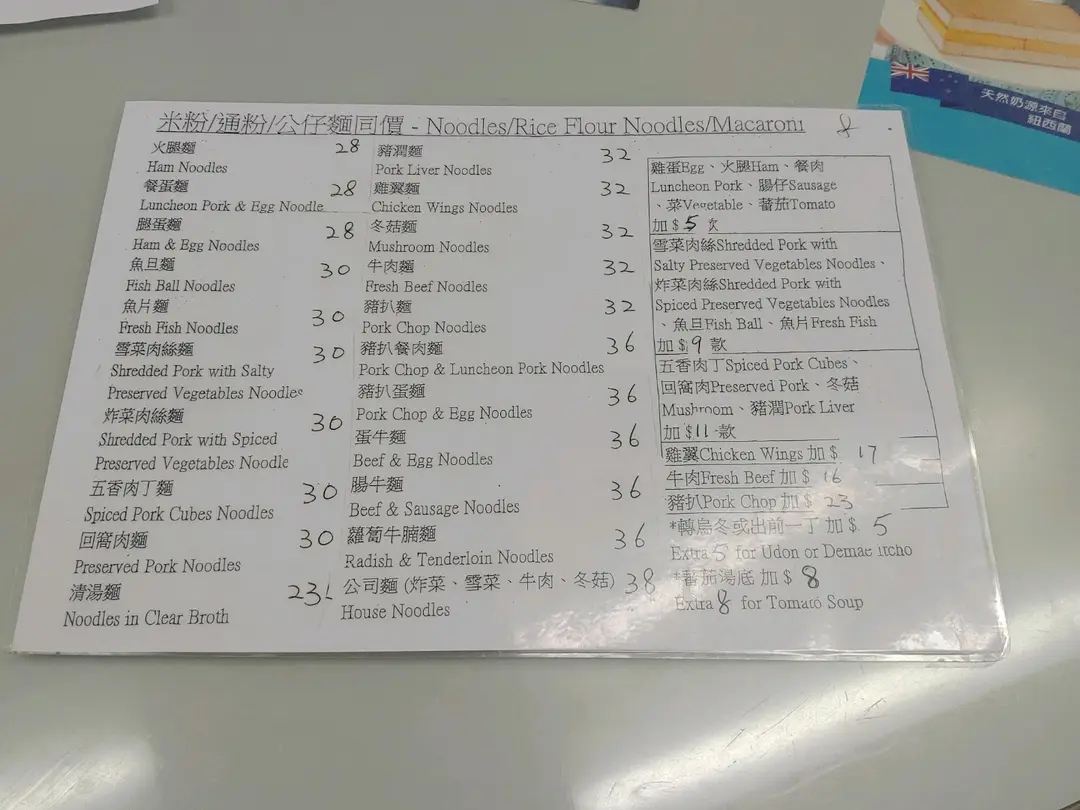 米粉/通粉/公仔麵同價 - Noodles/Rice Flour Noodles/Macaroni 8
火腿麵 28
Ham Noodles
餐蛋麵 28
Luncheon Pork & Egg Noodle
腿蛋麵 28
Ham & Egg Noodles
魚旦麵 30
Fish Ball Noodles
魚片麵 30
Fresh Fish Noodles
雪菜肉絲麵 30
Shredded Pork with Salty
Preserved Vegetables Noodles
炸菜肉絲麵 30
Shredded Pork with Spiced
Preserved Vegetables Noodle
五香肉丁麵 30
Spiced Pork Cubes Noodles
回窩肉麵 30
Preserved Pork Noodles
清湯麵 23
Noodles in Clear Broth
豬潤麵 32
Pork Liver Noodles
雞翼麵 32
Chicken Wings Noodles
冬菇麵 32
Mushroom Noodles
牛肉麵 32
Fresh Beef Noodles
豬扒麵 32
Pork Chop Noodles
豬扒餐肉麵 36
Pork Chop & Luncheon Pork Noodles
豬扒蛋麵 36
Pork Chop & Egg Noodles
蛋牛麵 36
Beef & Egg Noodles
腸牛麵 36
Beef & Sausage Noodles
蘿蔔牛腩麵 36
Radish & Tenderloin Noodles
公司麵 (炸菜、雪菜、牛肉、冬菇) 38
House Noodles
雞蛋Egg、火腿Ham、餐肉
Luncheon Pork、腸仔Sausage
、菜Vegetable、蕃茄Tomato
加 $ 5
雪菜肉絲Shredded Pork with
Salty Preserved Vegetables Noodles、
炸菜肉絲Shredded Pork with
Spiced Preserved Vegetables Noodles
、魚旦Fish Ball、魚片Fresh Fish
加 $ 9 款
五香肉丁Spiced Pork Cubes、
回窩肉Preserved Pork、冬菇
Mushroom、豬潤Pork Liver
加 $11 款
雞翼Chicken Wings 加 $ 17
牛肉Fresh Beef 加 $ 16
豬扒Pork Chop 加 $ 23
*轉烏冬或出前一丁 加 $ 5
Extra 5 for Udon or Demae Itcho
*蕃茄湯底 加 $ 8
Extra 8 for Tomato Soup
天然奶源來自
紐西蘭